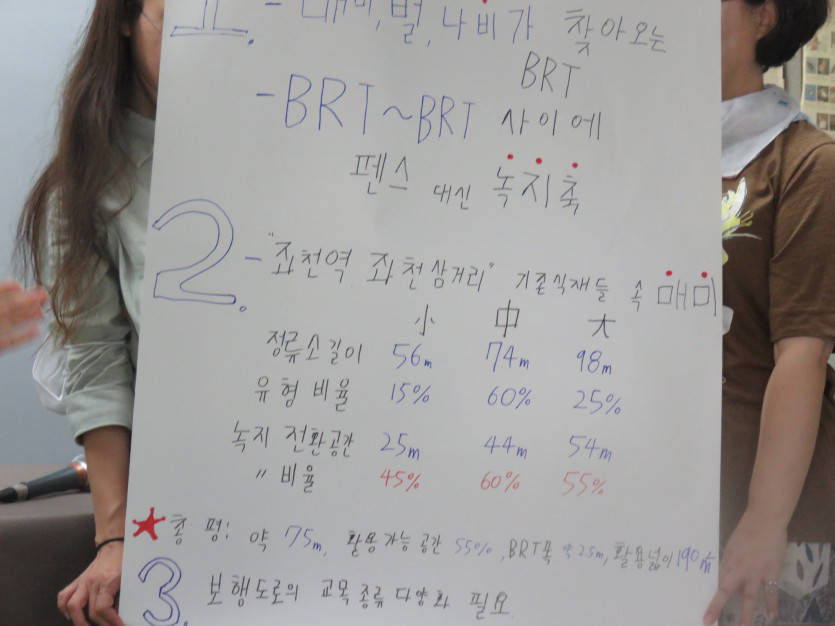 1. - 매미, 벌, 나비가 찾아오는
BRT
- BRT~BRT 사이에
펜스 대신 녹지축
2. - "좌천역. 좌천삼거리" 기존식재들 속 매미
小 中 大
정류소길이 56m 74m 98m
유형 비율 15% 60% 25%
녹지 전환공간 25m 44m 54m
〃 비율 45% 60% 55%
★총 평: 약 75m, 활용가능 공간 55%, BRT폭 약 2.5m, 활용넓이 190㎡
3. 보행도로의 교목 종류 다양화 필요